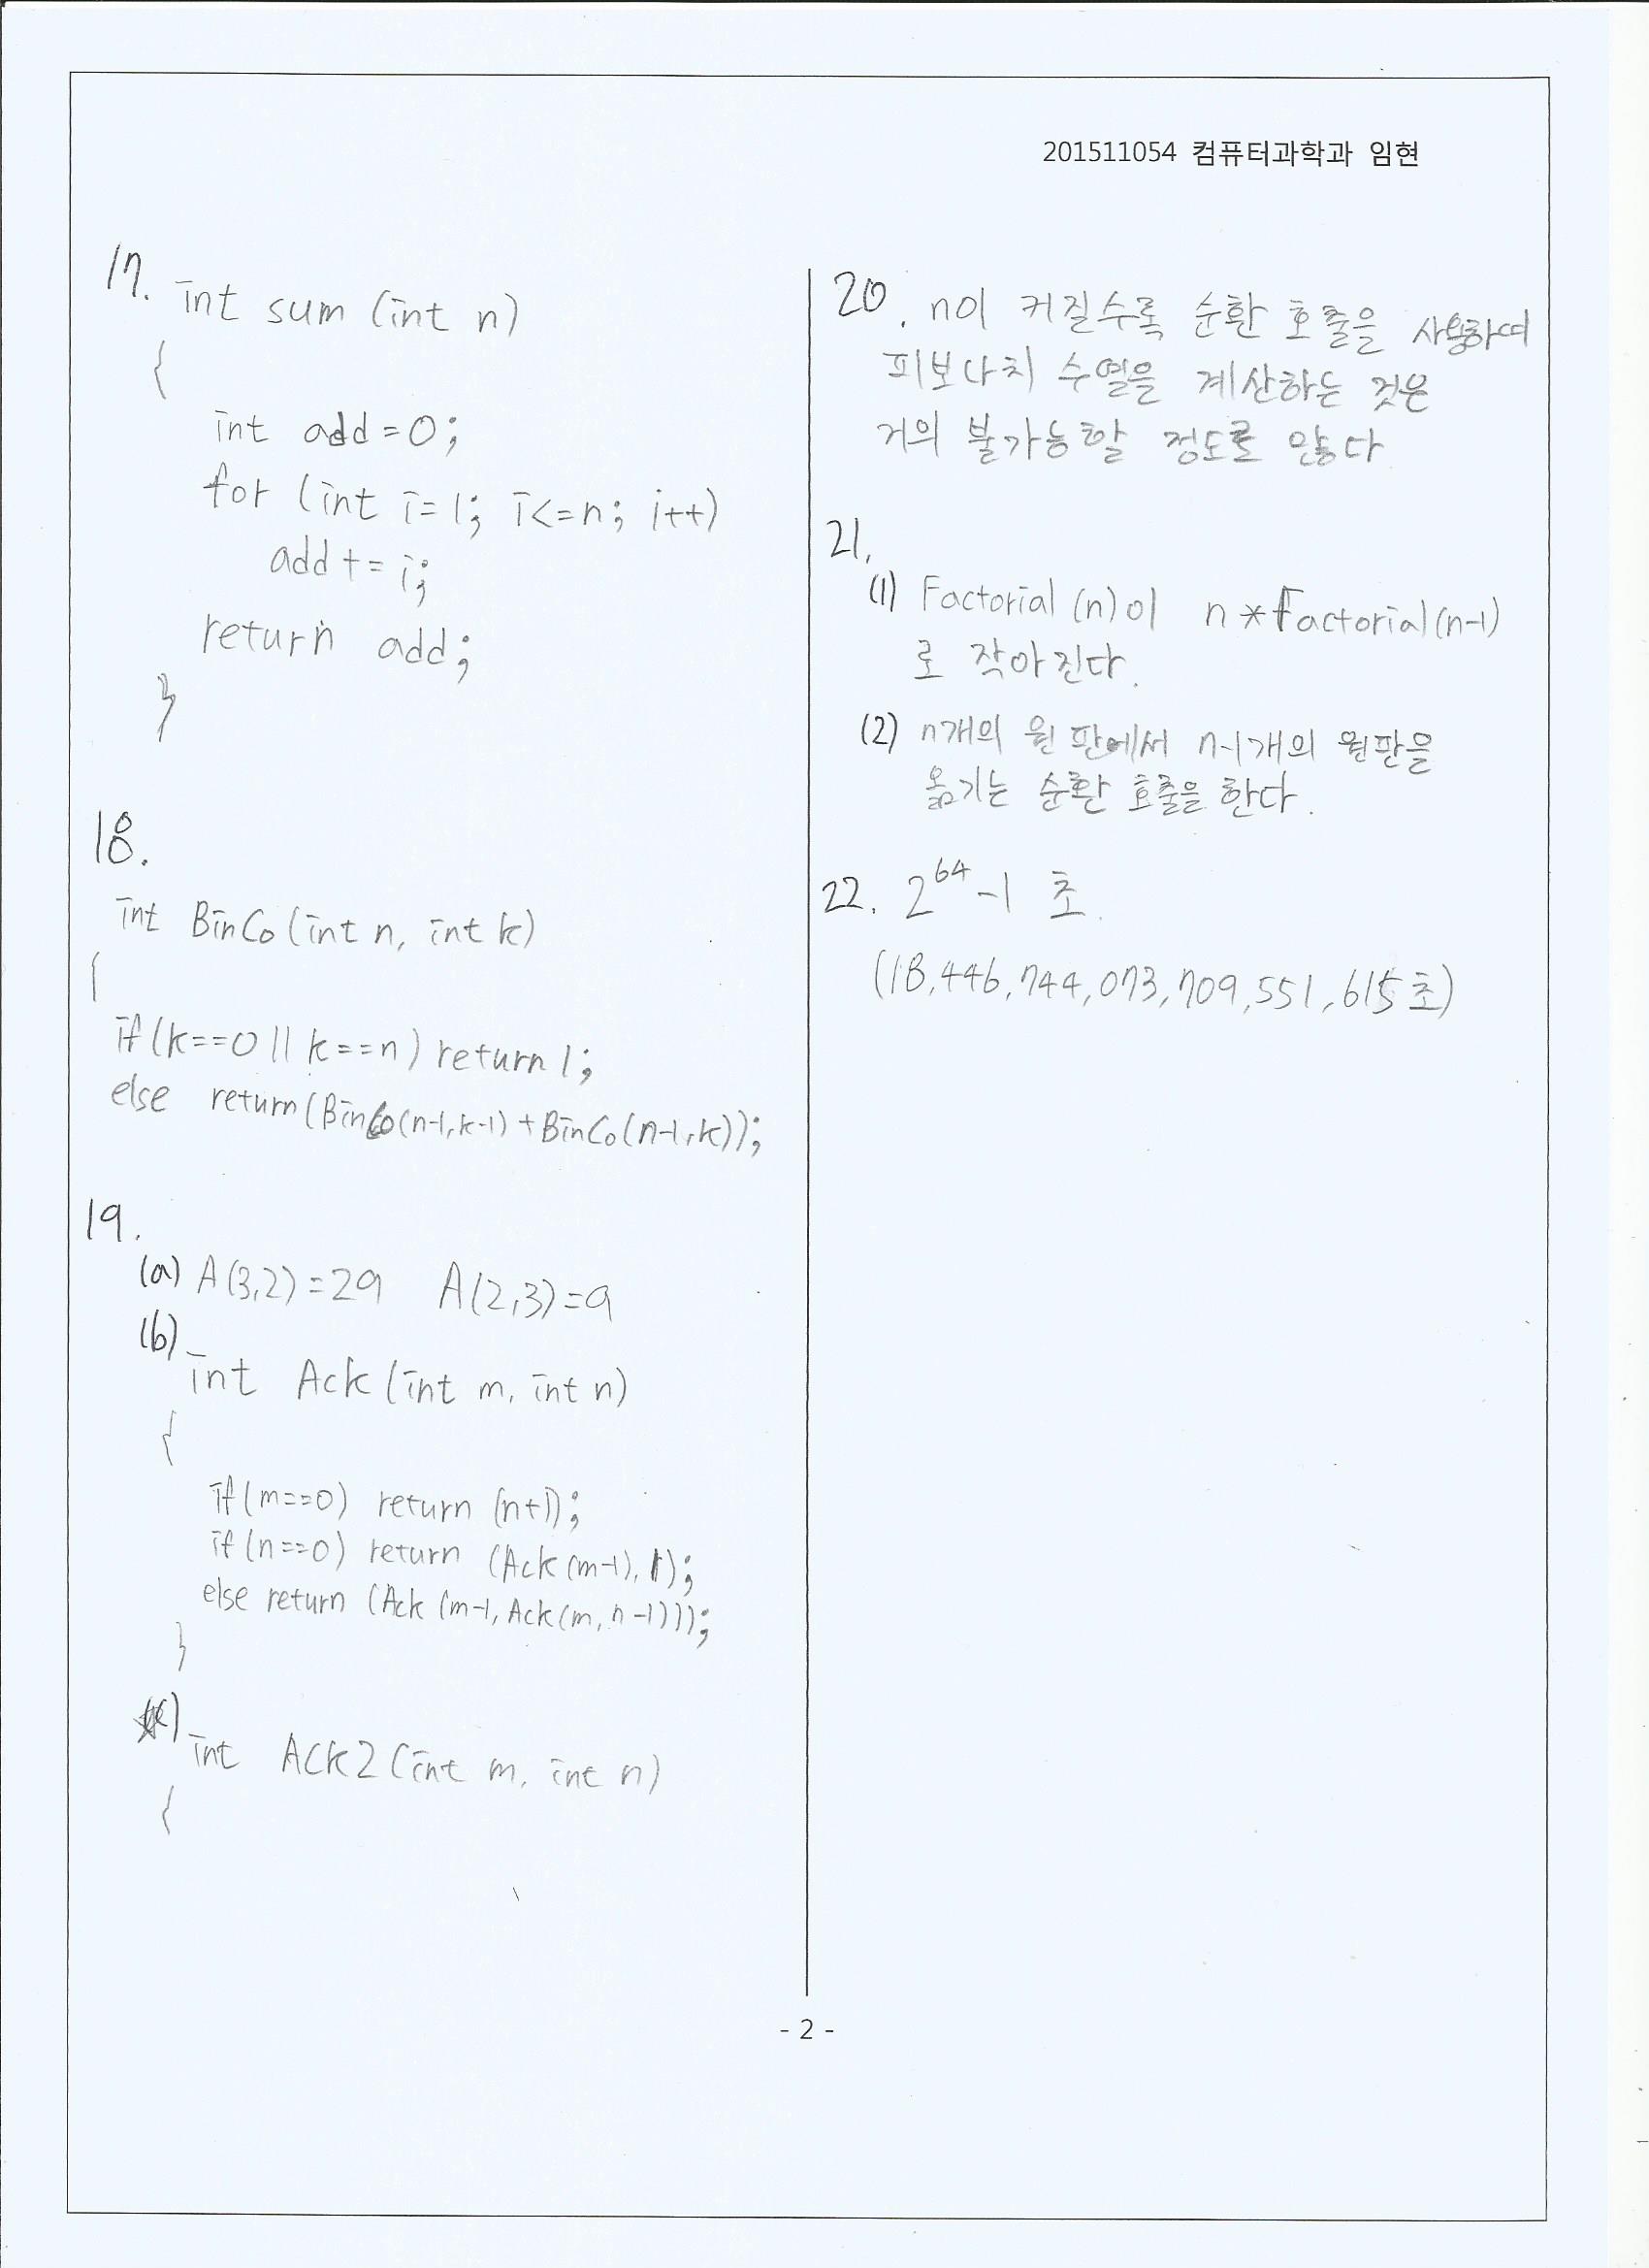 201511054 컴퓨터과학과 임현
17. int sum (int n)
{
int add=0;
for (int i=1; i<=n; i++)
add += i;
return add;
}
18.
int BinCo (int n, int k)
{
if(k==0 || k==n) return 1;
else return(BinCo(n-1,k-1)+BinCo(n-1,k));
19.
(a) A(3,2)=29 A(2,3)=9
(b)
int Ack (int m, int n)
{
if(m==0) return (n+1);
if(n==0) return (Ack(m-1),1);
else return (Ack(m-1, Ack(m, n-1)));
}
int ACK2 (int m, int n)
{
20. n이 커질수록 순환 호출을 사용하여
피보나치 수열을 계산하는 것은
거의 불가능할 정도로 많다
21.
(1) Factorial (n)이 n*Factorial(n-1)
로 작아진다.
(2) n개의 원판에서 n-1개의 원판을
옮기는 순환 호출을 한다.
22. 2^64-1 초.
(18,446,744,073,709,551,615초)
- 2 -